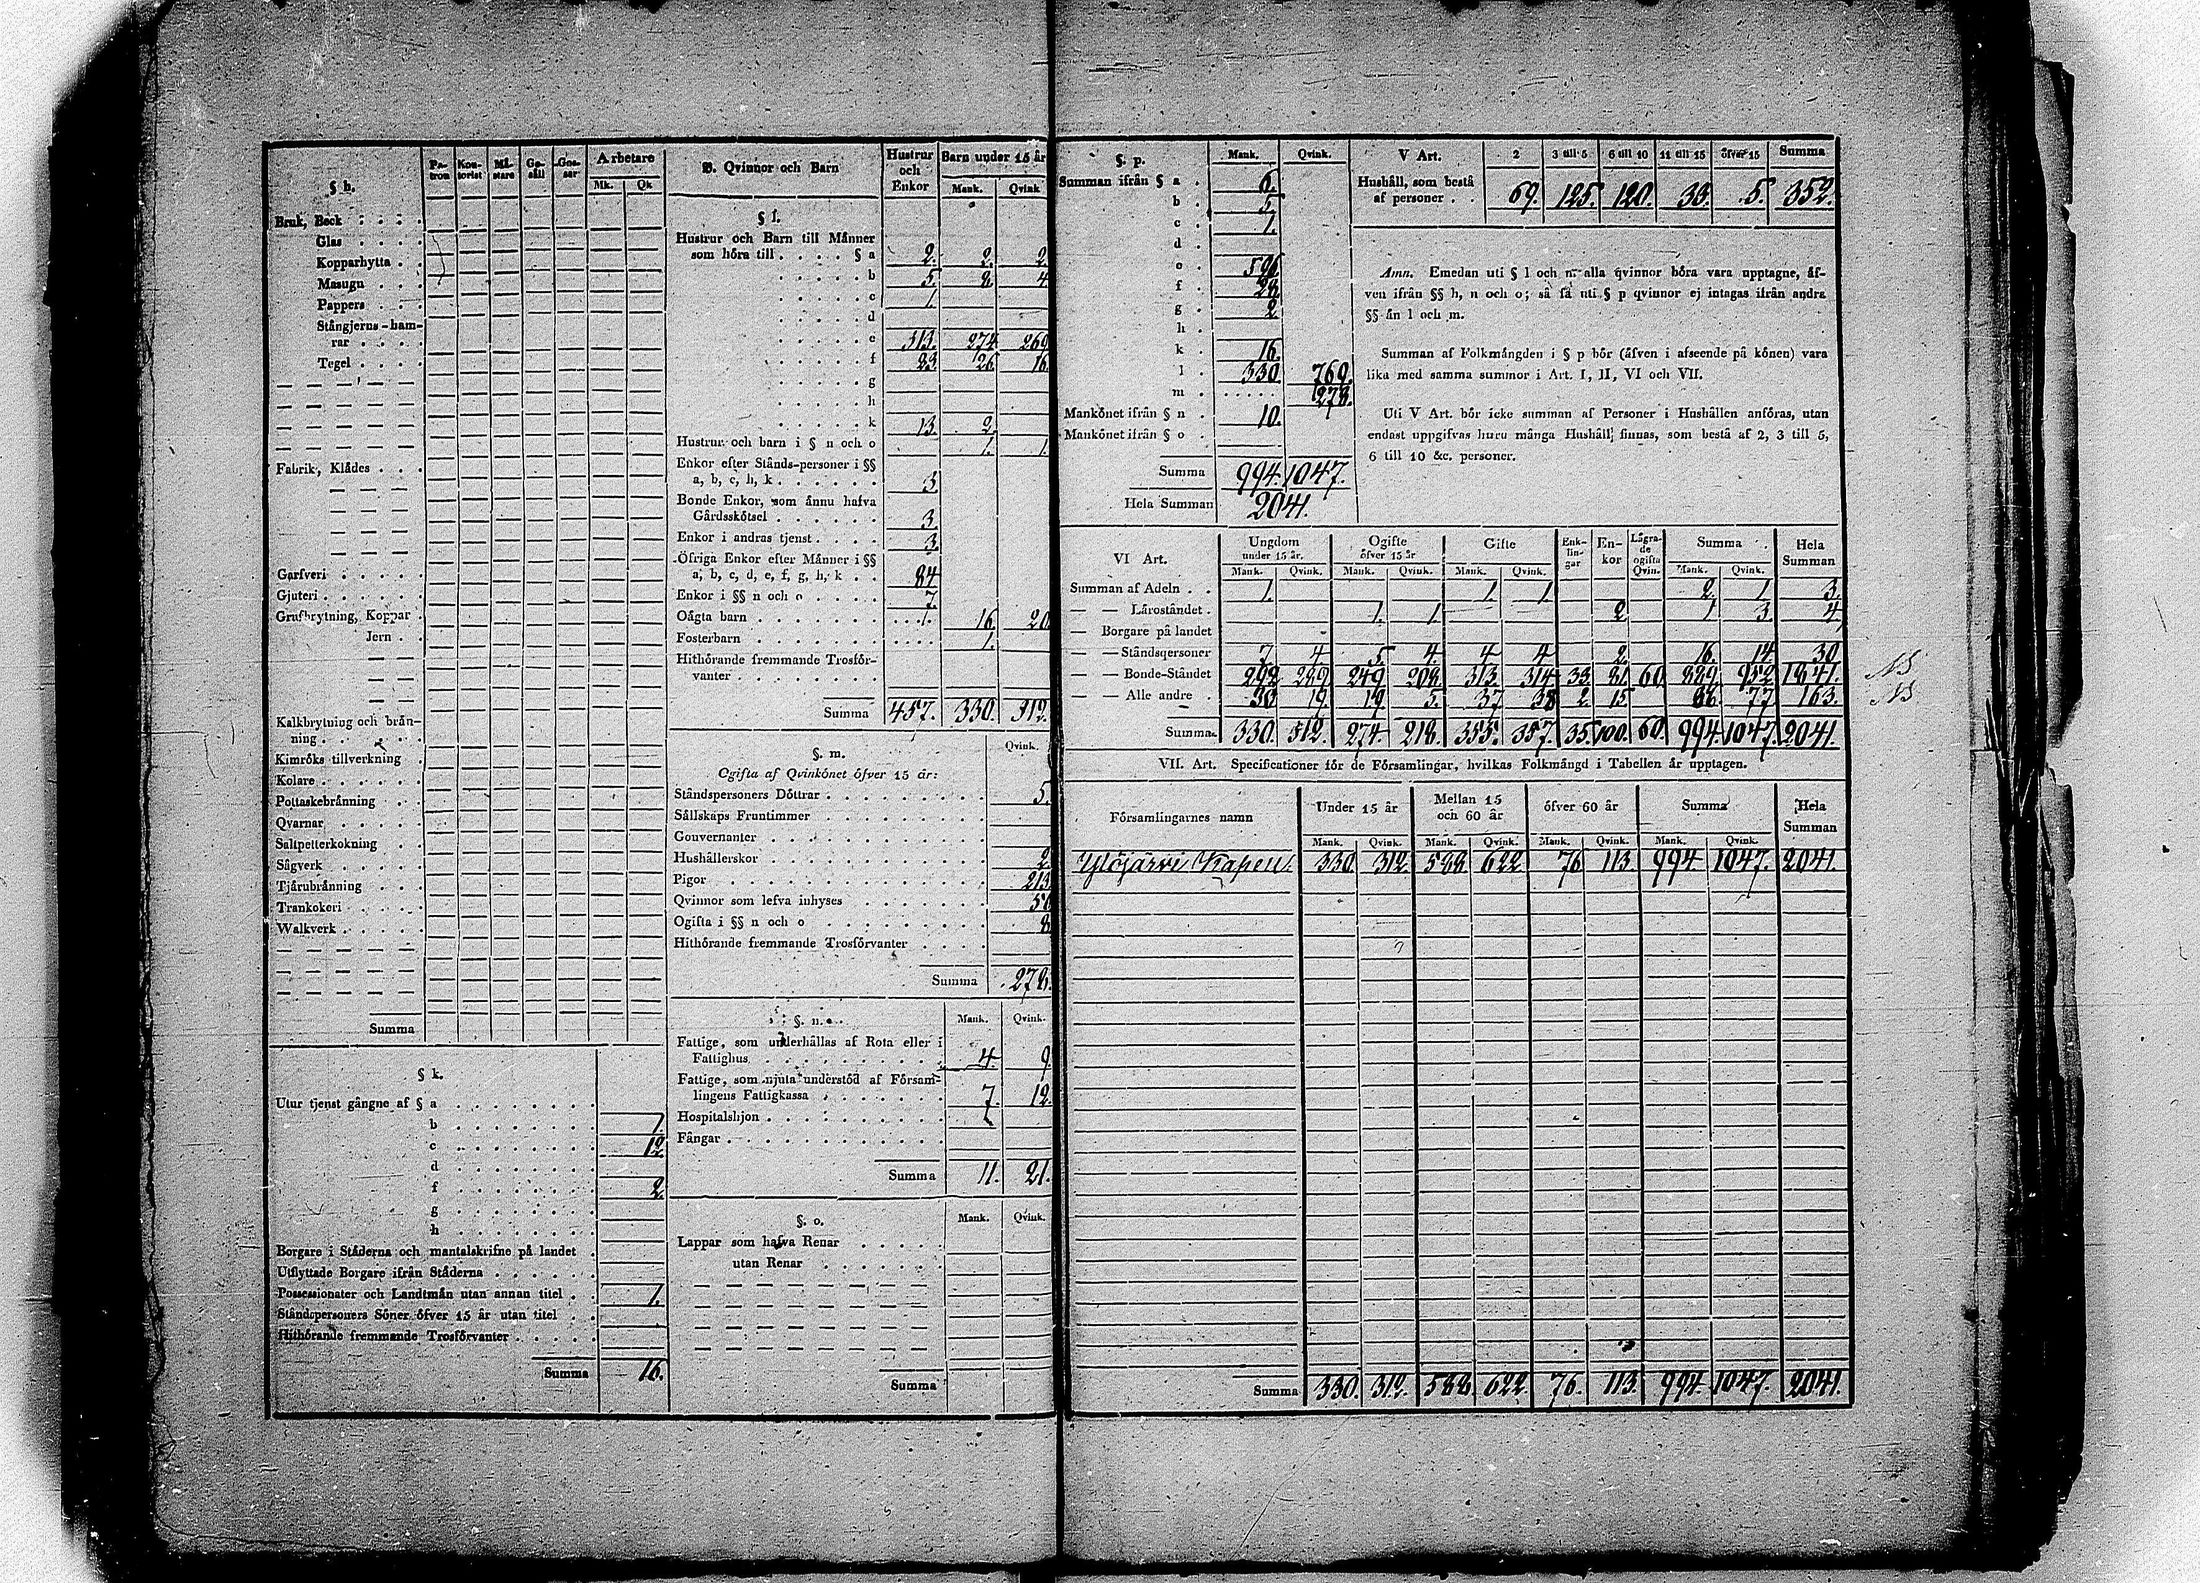 § h.
Pa- tron Kon- torist Mä- stare Ge- säll Gos- sar Arbetare
Mk. Qk
Bruk, Beck
Glas
Kopparhytta
Masugn
Pappers
Stångjerns-ham-
rar
Tegel
Fabrik, Klädes
Garfveri
Gjuteri
Grufbrytning, Koppar
Jern
Kalkbrytning och brän-
ning
Kimröks tillverkning
Kolare
Pottaskebränning
Qvarnar
Saltpetterkokning
Sågverk
Tjärubränning
Trankokeri
Walkverk
Summa
§ k.
Utur tjenst gångne af § a
b 1.
c 12
d
f 2
g
h
Borgare i Städerna och mantalskrifne på landet
Utflyttade Borgare ifrån Städerna
Possessionater och Landtmän utan annan titel 1.
Ståndspersoners Söner öfver 15 år utan titel
Hithörande fremmande Trosförvanter
Summa 16.
B. Qvinnor och Barn Hustrur och Enkor Barn under 15 år
Mank. Qvink
§ l.
Hustrur och Barn till Männer
som höra till § a 2. 2. 2.
b 5. 8 4
c 1.
d
e 313. 274. 269
f 23. 26. 16.
g
h
k 13. 2.
Hustrur och barn i § n och o 1. 1.
Enkor efter Stånds-personer i §§
a, b, c, h, k 3.
Bonde Enkor, som ännu hafva
Gårdsskötsel 3.
Enkor i andras tjenst 3.
Öfriga Enkor efter Männer i §§
a, b, c, d, e, f, g, h, k 84
Enkor i §§ n och o 7.
Oägta barn 1. 16. 20.
Fosterbarn 1.
Hithörande fremmande Trosför-
vanter
Summa 457. 330. 312.
§. m. Qvink.
Ogifta af Qvinkönet öfver 15 år:
Ståndspersoners Döttrar 5.
Sällskaps Fruntimmer
Gouvernanter
Hushållerskor 2
Pigor 213
Qvinnor som lefva inhyses 50
Ogifta i §§ n och o 8.
Hithörande fremmande Trosförvanter
Summa 278.
§. n. Mank. Qvink.
Fattige, som underhållas af Rota eller i
Fattighus 4 9.
Fattige, som njuta understöd af Försam-
lingens Fattigkassa 7. 12.
Hospitalshjon
Fångar
Summa 11. 21.
§. o. Mank. Qvink.
Lappar som hafva Renar
utan Renar
Summa
§. p. Mank. Qvink.
Summan ifrån § a 6.
b 5.
c 1.
d
e 596
f 28.
g 2.
h
k 16.
l 330. 769.
m 278.
Mankönet ifrån § n 10.
Mankönet ifrån § o
Summa 994. 1047.
Hela Summan 2041.
V Art. 2 3 till 5 6 till 10 11 till 15 öfver 15 Summa
Hushåll, som bestå
af personer 69. 125. 120. 33. 5. 352.
Anm. Emedan uti § l och m alla qvinnor böra vara upptagne, äf-
ven ifrån §§ h, n och o; så få uti § p qvinnor ej intagas ifrån andra
§§ än l och m.
Summan af Folkmängden i § p bör (äfven i afseende på könen) vara
lika med samma summor i Art. I, II, VI och VII.
Uti V Art. bör icke summan af Personer i Hushållen anföras, utan
endast uppgifvas huru många Hushåll finnas, som bestå af 2, 3 till 5,
6 till 10 &c. personer.
VI Art. Ungdom under 15 år. Ogifte öfver 15 år Gifte Enk- lin- gar En- kor Lägra- de ogifta Qvin. Summa Hela Summan
Mank. Qvink. Mank. Qvink. Mank. Qvink. Mank. Qvink.
Summan af Adeln 1. 1. 1. 2. 1. 3.
— — Läroståndet 1. 1. 2 1 3. 4.
— Borgare på landet
— — Ståndspersoner 7 4 5. 4. 4 4 2. 16. 14. 30
— — Bonde-Ståndet 292 289 249 208. 313. 314 33. 81. 60. 889. 952. 1841.
— — Alle andre 30 19. 19. 5. 37 38 2. 15. 86. 77 163.
Summa 330. 312. 274. 218. 355. 357. 35. 100. 60. 994. 1047. 2041.
VII. Art. Specificationer för de Församlingar, hvilkas Folkmängd i Tabellen är upptagen.
Församlingarnes namn Under 15 år Mellan 15 och 60 år öfver 60 år Summa Hela Summan
Mank. Qvink. Mank. Qvink. Mank. Qvink. Mank. Qvink.
Ylöjärvi Kapell. 330. 312. 588. 622. 76. 113. 994. 1047. 2041.
Summa 330. 312. 588. 622. 76. 113. 994. 1047. 2041.